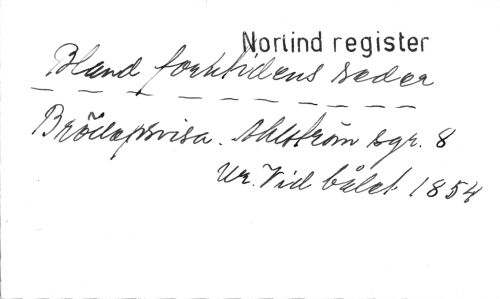 Norlind register
Bland forntidens seder
Brödupvisa. Ahlström sgr. 8
Ur. Vid bålet 1854